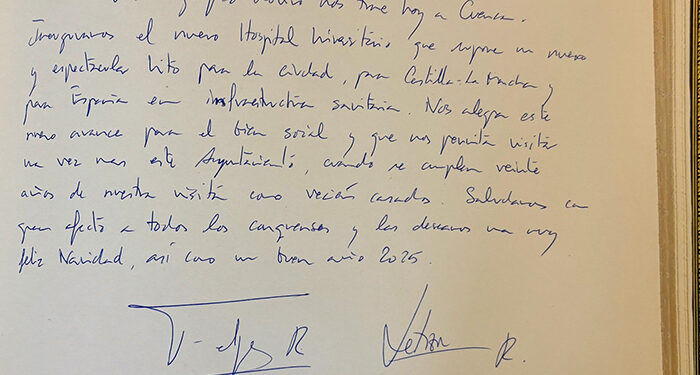 y que motivo nos trae hoy a Cuenca.
Inauguramos el nuevo Hospital Universitario que supone un nuevo
y espectacular hito para la ciudad, para Castilla-La Mancha y
para España en infraestructura sanitaria. Nos alegra este
nuevo avance para el bien social y que nos permita visitar
una vez mas este Ayuntamiento, cuando se cumplen veinte
años de nuestra visita como recién casados. Saludamos con
gran afecto a todos los conquenses y les deseamos una muy
feliz Navidad, así como un buen año 2025.
Felipe R Letizia R.